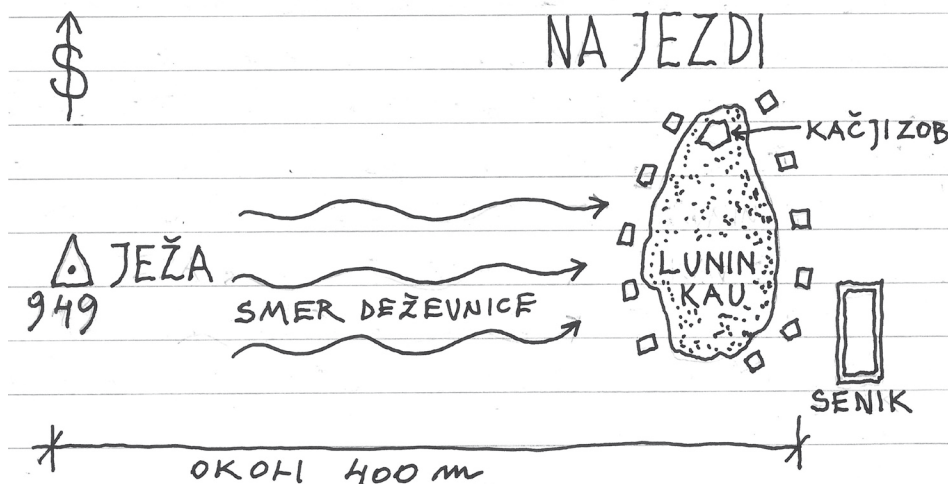 S
NA JEZDI
KAČJI ZOB
JEŽA
949
SMER DEŽEVNICE
LUNIN
KAU
SENIK
OKOLI 400 m